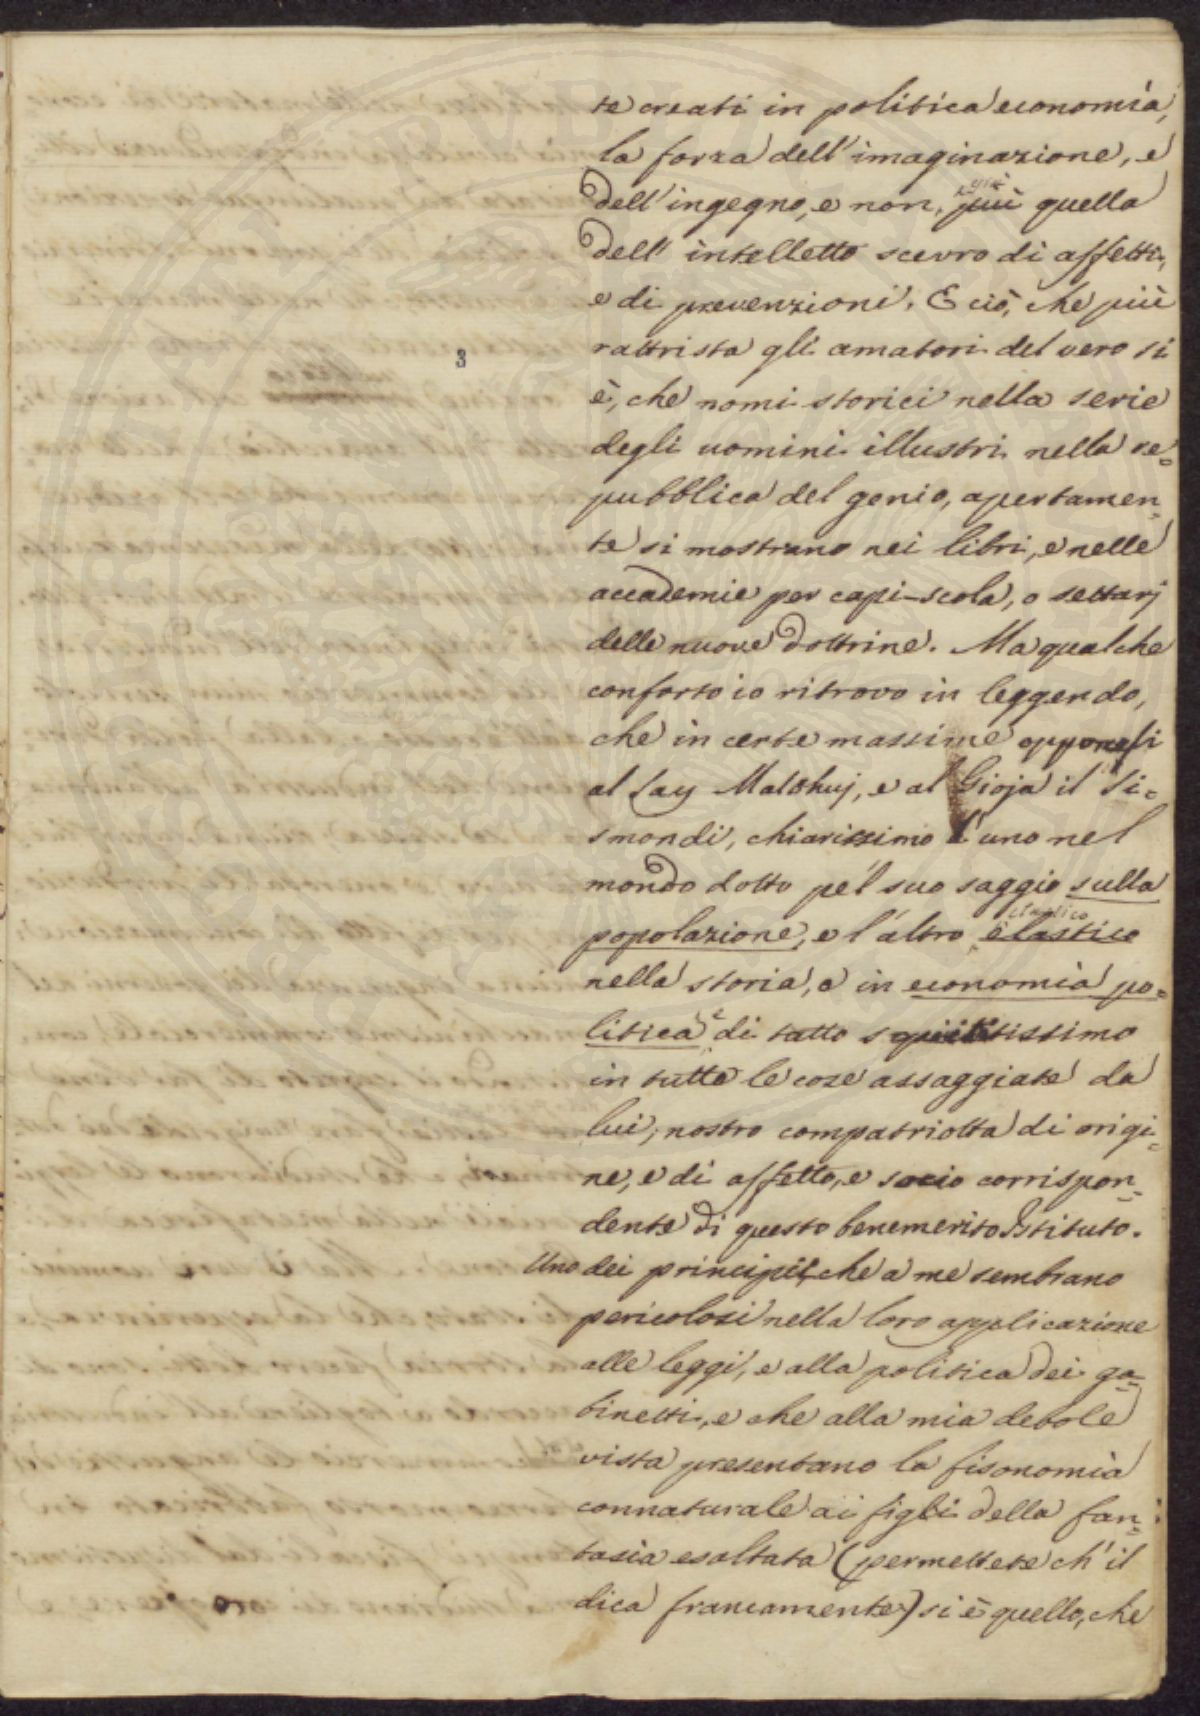 te creati in politica economia,
la forza dell'imaginazione, e
dell'ingegno, e non, già più quella
dell'intelletto scevro di affetti,
e di prevenzioni. E ciò, che più
rattrista gli amatori del vero si
è, che nomi storici nella serie
3
degli uomini illustri nella re=
pubblica del genio, apertamen=
te si mostrano nei libri, e nelle
accademie per capi-scola, o settarj
delle nuove dottrine. Ma qualche
conforto io ritrovo in leggendo,
che in certe massime opponesi
al Say Maltkuj, e al Gioja il Si=
smondi, chiarissimo l'uno nel
mondo dotto pel suo saggio sulla
popolazione, e l'altro classico elastico
nella storia, e in economia po=
litica e di tatto squisitissimo
in tutte le cose assaggiate da
lui, nostro compatriotta di origi=
ne, e di affetto, e socio corrispon=
dente di questo benemerito Istituto.
Uno dei principii, che a me sembrano
pericolosi nella loro applicazione
alle leggi, e alla politica dei ga=
binetti, e che alla mia debole
vista presentano la fisonomia
connaturale ai figli della fan=
tasia esaltata (permettete ch'il
dica francamente) si è quello, che